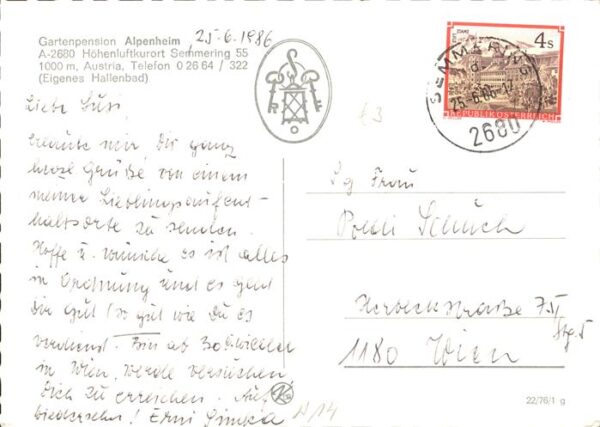 Gartenpension Alpenheim
A-2680 Höhenluftkurort Semmering 55
1000 m, Austria, Telefon 0 26 64 / 322
(Eigenes Hallenbad)
25.6.1986
Liebe Susi,
erlaube mir, Dir ganz
herzl. Grüße von einem
meiner Lieblingsaufent-
haltsorte zu senden.
Hoffe u. wünsche es ist alles
in Ordnung und es geht
Dir gut (so gut wie Du es
verdienst. Bin ab
in Wien, werde versuchen
Dich zu erreichen. Auf
Wiedersehn! Erni
4 S
REPUBLIK ÖSTERREICH
SEMMERING
25.6.86-17
2680
Sg Frau
Schuch
Herbeckstraße 75
Stg. 5
1180 Wien
22/76/1 g